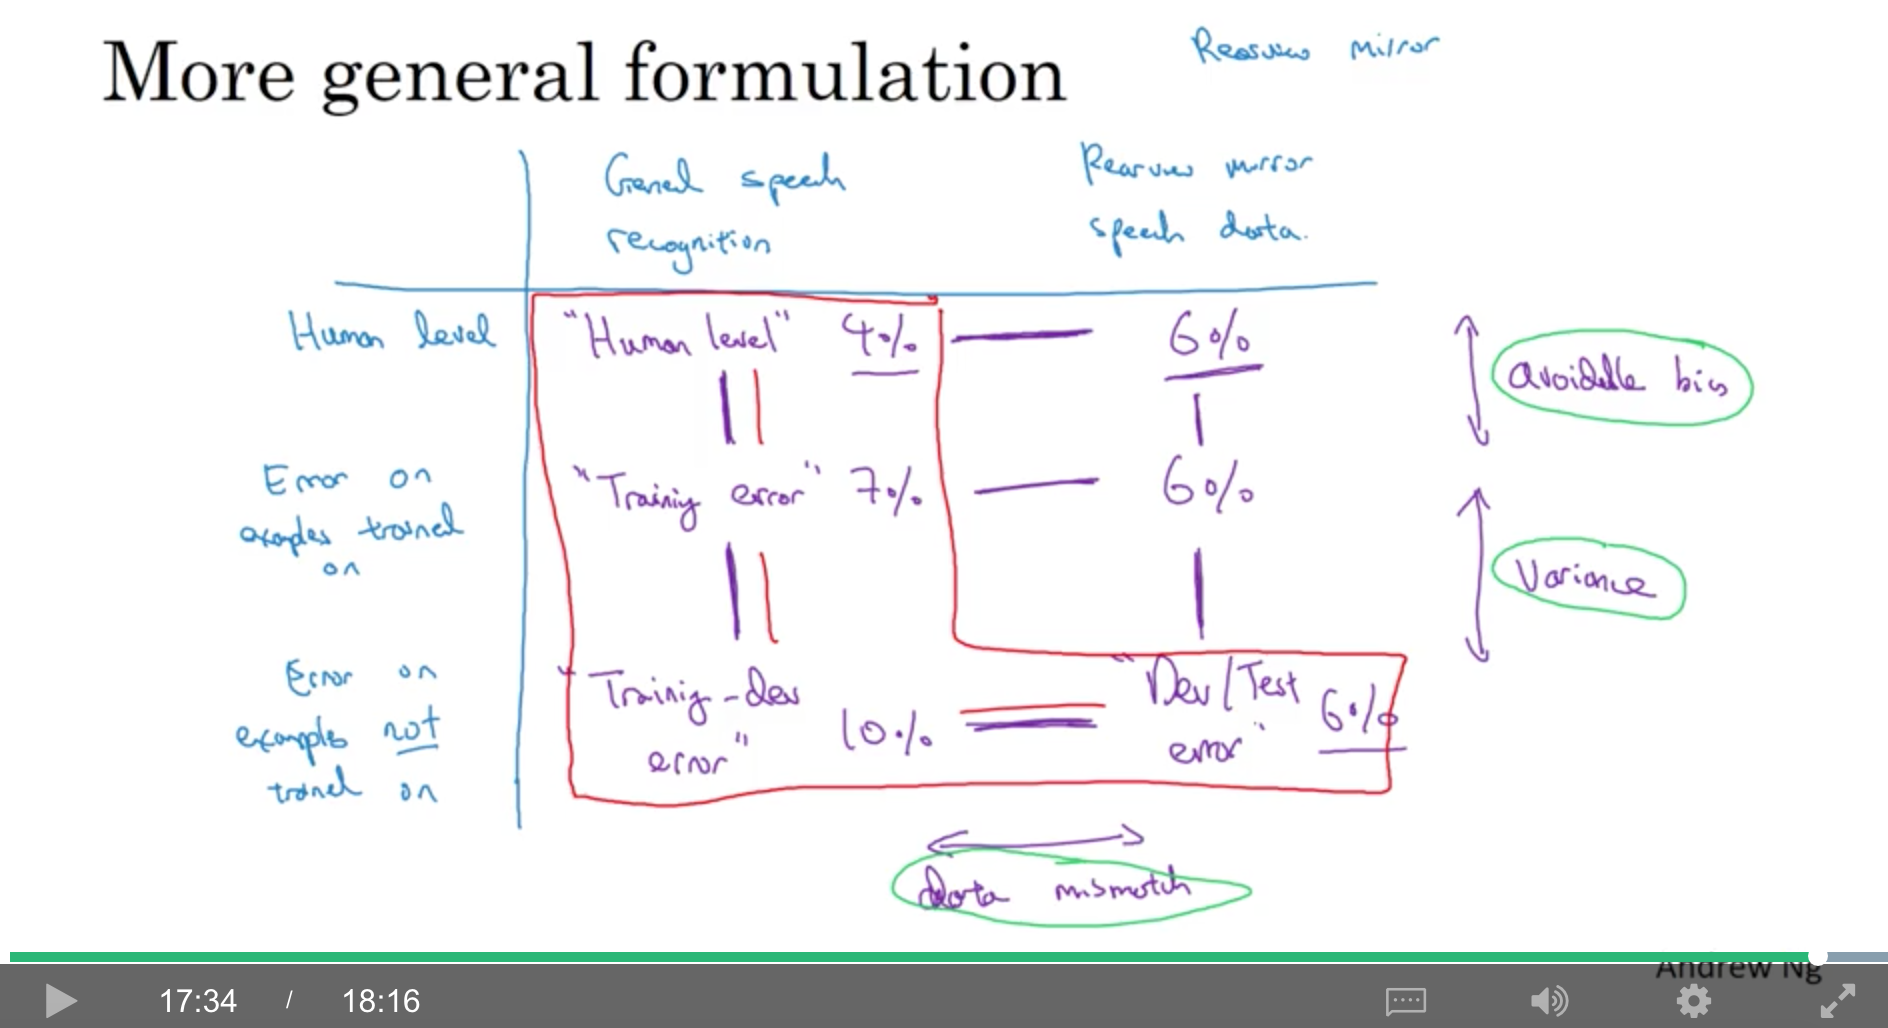 More general formulation
Rearview mirror
General speech
recognition
Rearview mirror
speech data.
Human level
"Human level" 4%
6%
avoidable bias
Error on
examples trained
on
"Training error" 7%
6%
Variance
Error on
examples not
trained on
"Training-dev
error" 10%
"Dev/Test
error" 6%
data mismatch
Andrew Ng
17:34 / 18:16